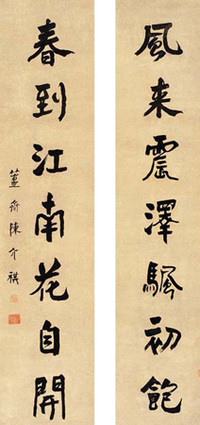 風来震澤颿初飽
春到江南花自開
簠齋陳介祺